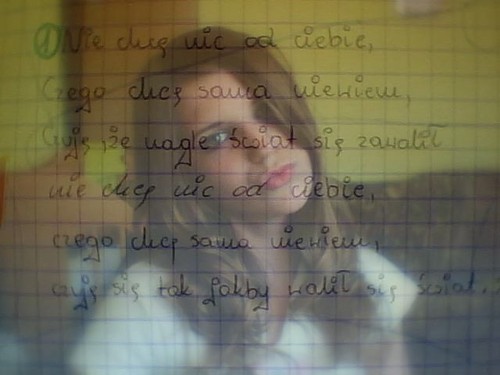 1) Nie chcę nic od ciebie,
Czego chcę sama niewiem,
Czyję że nagle świat się zawalił
nie chcę nic od ciebie,
czego chcę sama niewiem,
czyję się tak jakby walił się świat.